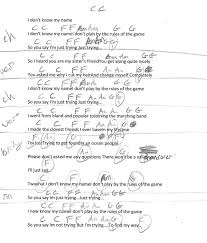 C C
I don't know my name
C C F F Am Am G G
I don't know my name I don't play by the rules of the game
C C F F Am G G
So you say I'm just trying Just trying...
C C F F Am Am G G
So I heard you are my sister's friend You get along quite nicely
C C F F Am Am G G
You asked me why I cut my hair And change myself completely
C C F F Am Am G G
I don't know my name I don't play by the rules of the game
C C F F Am Am G G
So you say I'm just trying...Just trying
C C F F Am Am G G
I went from bland and popular to joining the marching band
C C F F Am Am G G
I made the closest friends I ever have in my lifetime
I'm lost Trying to get found In an ocean people
Please don't asked me any questions There won't be a
I'll just say
F Am G
I don't know my name I don't play by the rules of the game
C C F F Am Am G G
So you say I'm just trying...Just trying...
C C F F Am Am G G
I now know my name I don't play by the rules of the game
C C F F Am Am G G
So you say I'm not trying But I'm trying...To find my way.